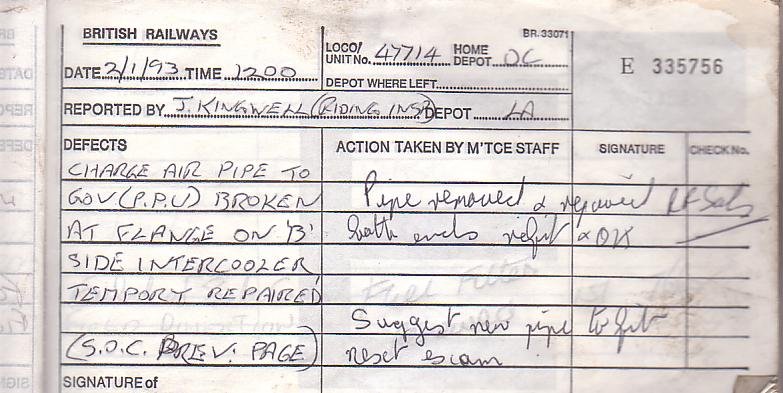 BRITISH RAILWAYS
BR.33071
LOCO/ UNIT No. 47714 HOME DEPOT OC
E 335756
DATE 2/1/93 TIME 1200
DEPOT WHERE LEFT
REPORTED BY J. KINGWELL (RIDING INSP) DEPOT LA
DEFECTS ACTION TAKEN BY M'TCE STAFF SIGNATURE CHECK No.
CHARGE AIR PIPE TO
GOV (P.P.U) BROKEN Pipe removed & repaired
AT FLANGE ON 'B' both ends refit & OK
SIDE INTERCOOLER
TEMPORY REPAIRED
Suggest new pipe to fit
(S.O.C. PREV: PAGE) reset
SIGNATURE of